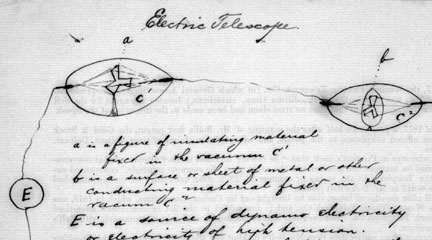 Electric Telescope
a
b
C'
C"
E
a is a figure of insulating material
fixed in the vacuum C'
b is a surface or sheet of metal or other
conducting material fixed in the
vacuum C"
E is a source of dynamo electricity
or electricity of high tension.